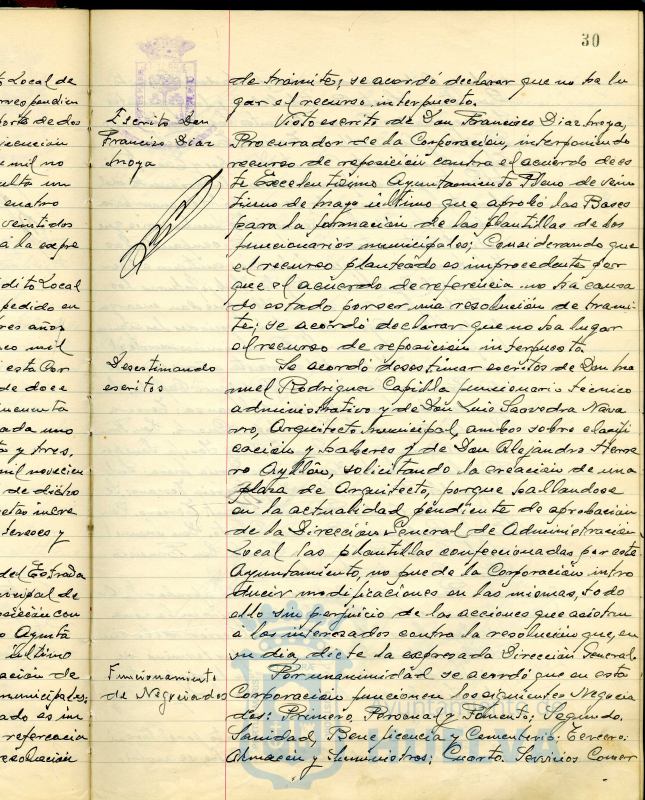 30
de trámite; se acordó declarar que no ha lu
gar el recurso interpuesto.
Escrito Don
Francisco Diaz
Inoya
Visto escrito de Don Francisco Diaz Inoya,
Procurador de la Corporación, interponiendo
recurso de reposición contra el acuerdo de es
te Excelentísimo Ayuntamiento Pleno de vein
tiuno de mayo último que aprobó las Bases
para la formación de las plantillas de los
funcionarios municipales; Considerando que
el recurso planteado es improcedente por
que el acuerdo de referencia no ha causa
do estado por ser una resolución de trami
te; se acordó declarar que no ha lugar
el recurso de reposición interpuesto
Desestimando
escritos
Se acordó desestimar escritos de Don Ma
nuel Rodriguez Capilla funcionario técnico
administrativo y de Don Luis Saavedra Nava
rro, Arquitecto municipal, ambos sobre clasifi
cación y haberes y de Don Alejandro Herre
ro Ayllón, solicitando la creación de una
plaza de Arquitecto, porque hallandose
en la actualidad pendiente de aprobación
de la Dirección General de Administración
Local las plantillas confeccionadas por este
Ayuntamiento, no puede la Corporación intro
ducir modificaciones en las mismas, todo
ello sin perjuicio de las acciones que asistan
a los interesados contra la resolución que, en
su dia, dicte la expresada Dirección General.
Funcionamiento
de Negociados
Por unanimidad se acordó que en esta
Corporación funcionen los siguientes Negocia
dos: Primero, Personal y Fomento; Segundo.
Sanidad, Beneficencia y Cementerio; Tercero:
Almacen y Suministros; Cuarto. Servicios Comer
Ayuntamiento de
HUELVA
o Local de
porte de dos
mil no
cuatro
veintidos
á la expre
dito Local
pedido en
tres años
co mil
esta Cor
de doce
ada uno
y tres,
mil novecien
de dicho
tereses y
del Estrada
nicipal de
sición con
o Ayunta
último
ación de
municipales;
ado es im
referencia
resolución